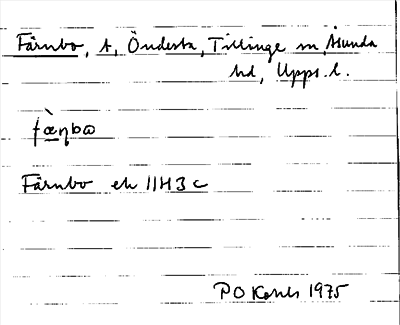 Färnbo, t, Öndersta, Tillinge sn, Åsunda
hd, Upps. l.
fæ̀ŋbɷ
Färnbo ek 11H3c
PO 1975